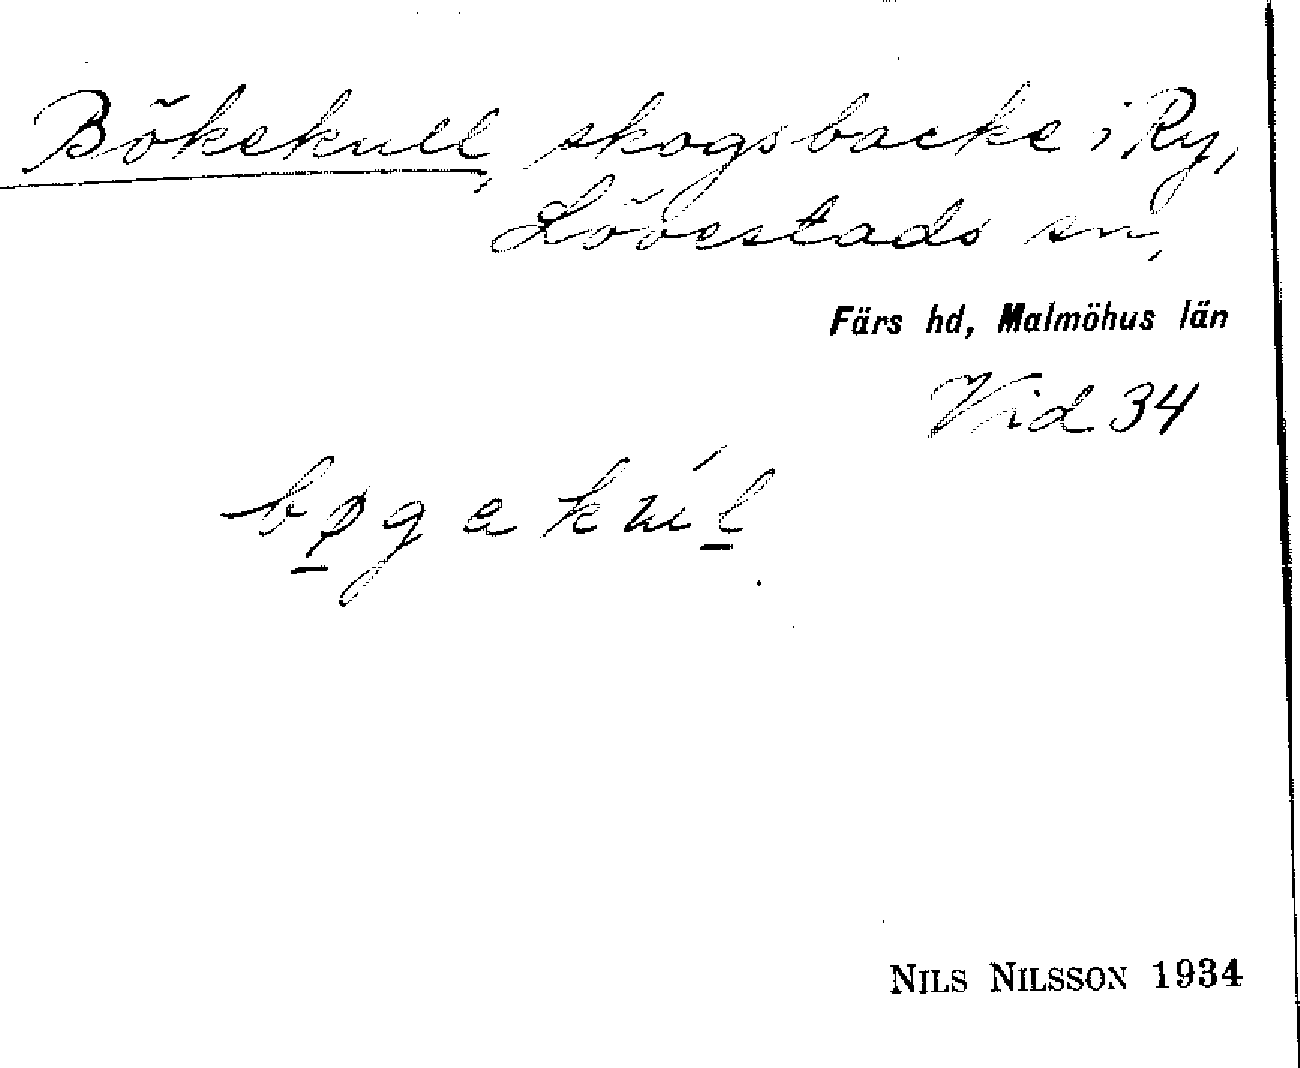 Bökekull, skogsbacke i Ry,
Lövestads sn,
Färs hd, Malmöhus län
Vid 34
bøgekúl
NILS NILSSON 1934